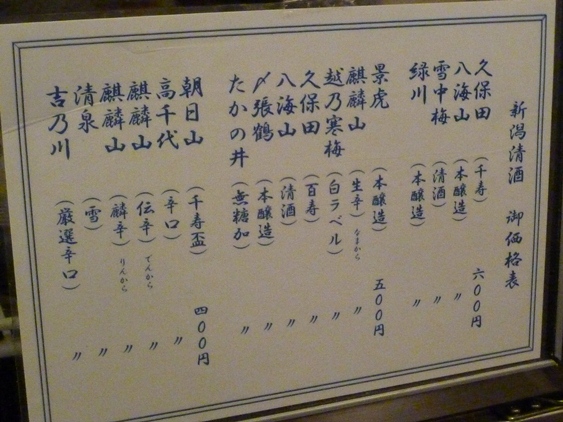 新潟清酒 御価格表
久保田 (千寿) 六〇〇円
八海山 (本醸造) 〃
雪中梅 (清酒) 〃
緑川 (本醸造) 〃
景虎 (本醸造) 五〇〇円
麒麟山 (生辛) なまから 〃
越乃寒梅 (白ラベル) 〃
久保田 (百寿) 〃
八海山 (清酒) 〃
〆張鶴 (本醸造) 〃
たかの井 (無糖加) 〃
朝日山 (千寿盃) 四〇〇円
高千代 (辛口) 〃
麒麟山 (伝辛) でんから 〃
麒麟山 (麟辛) りんから 〃
清泉 (雪) 〃
吉乃川 (厳選辛口) 〃